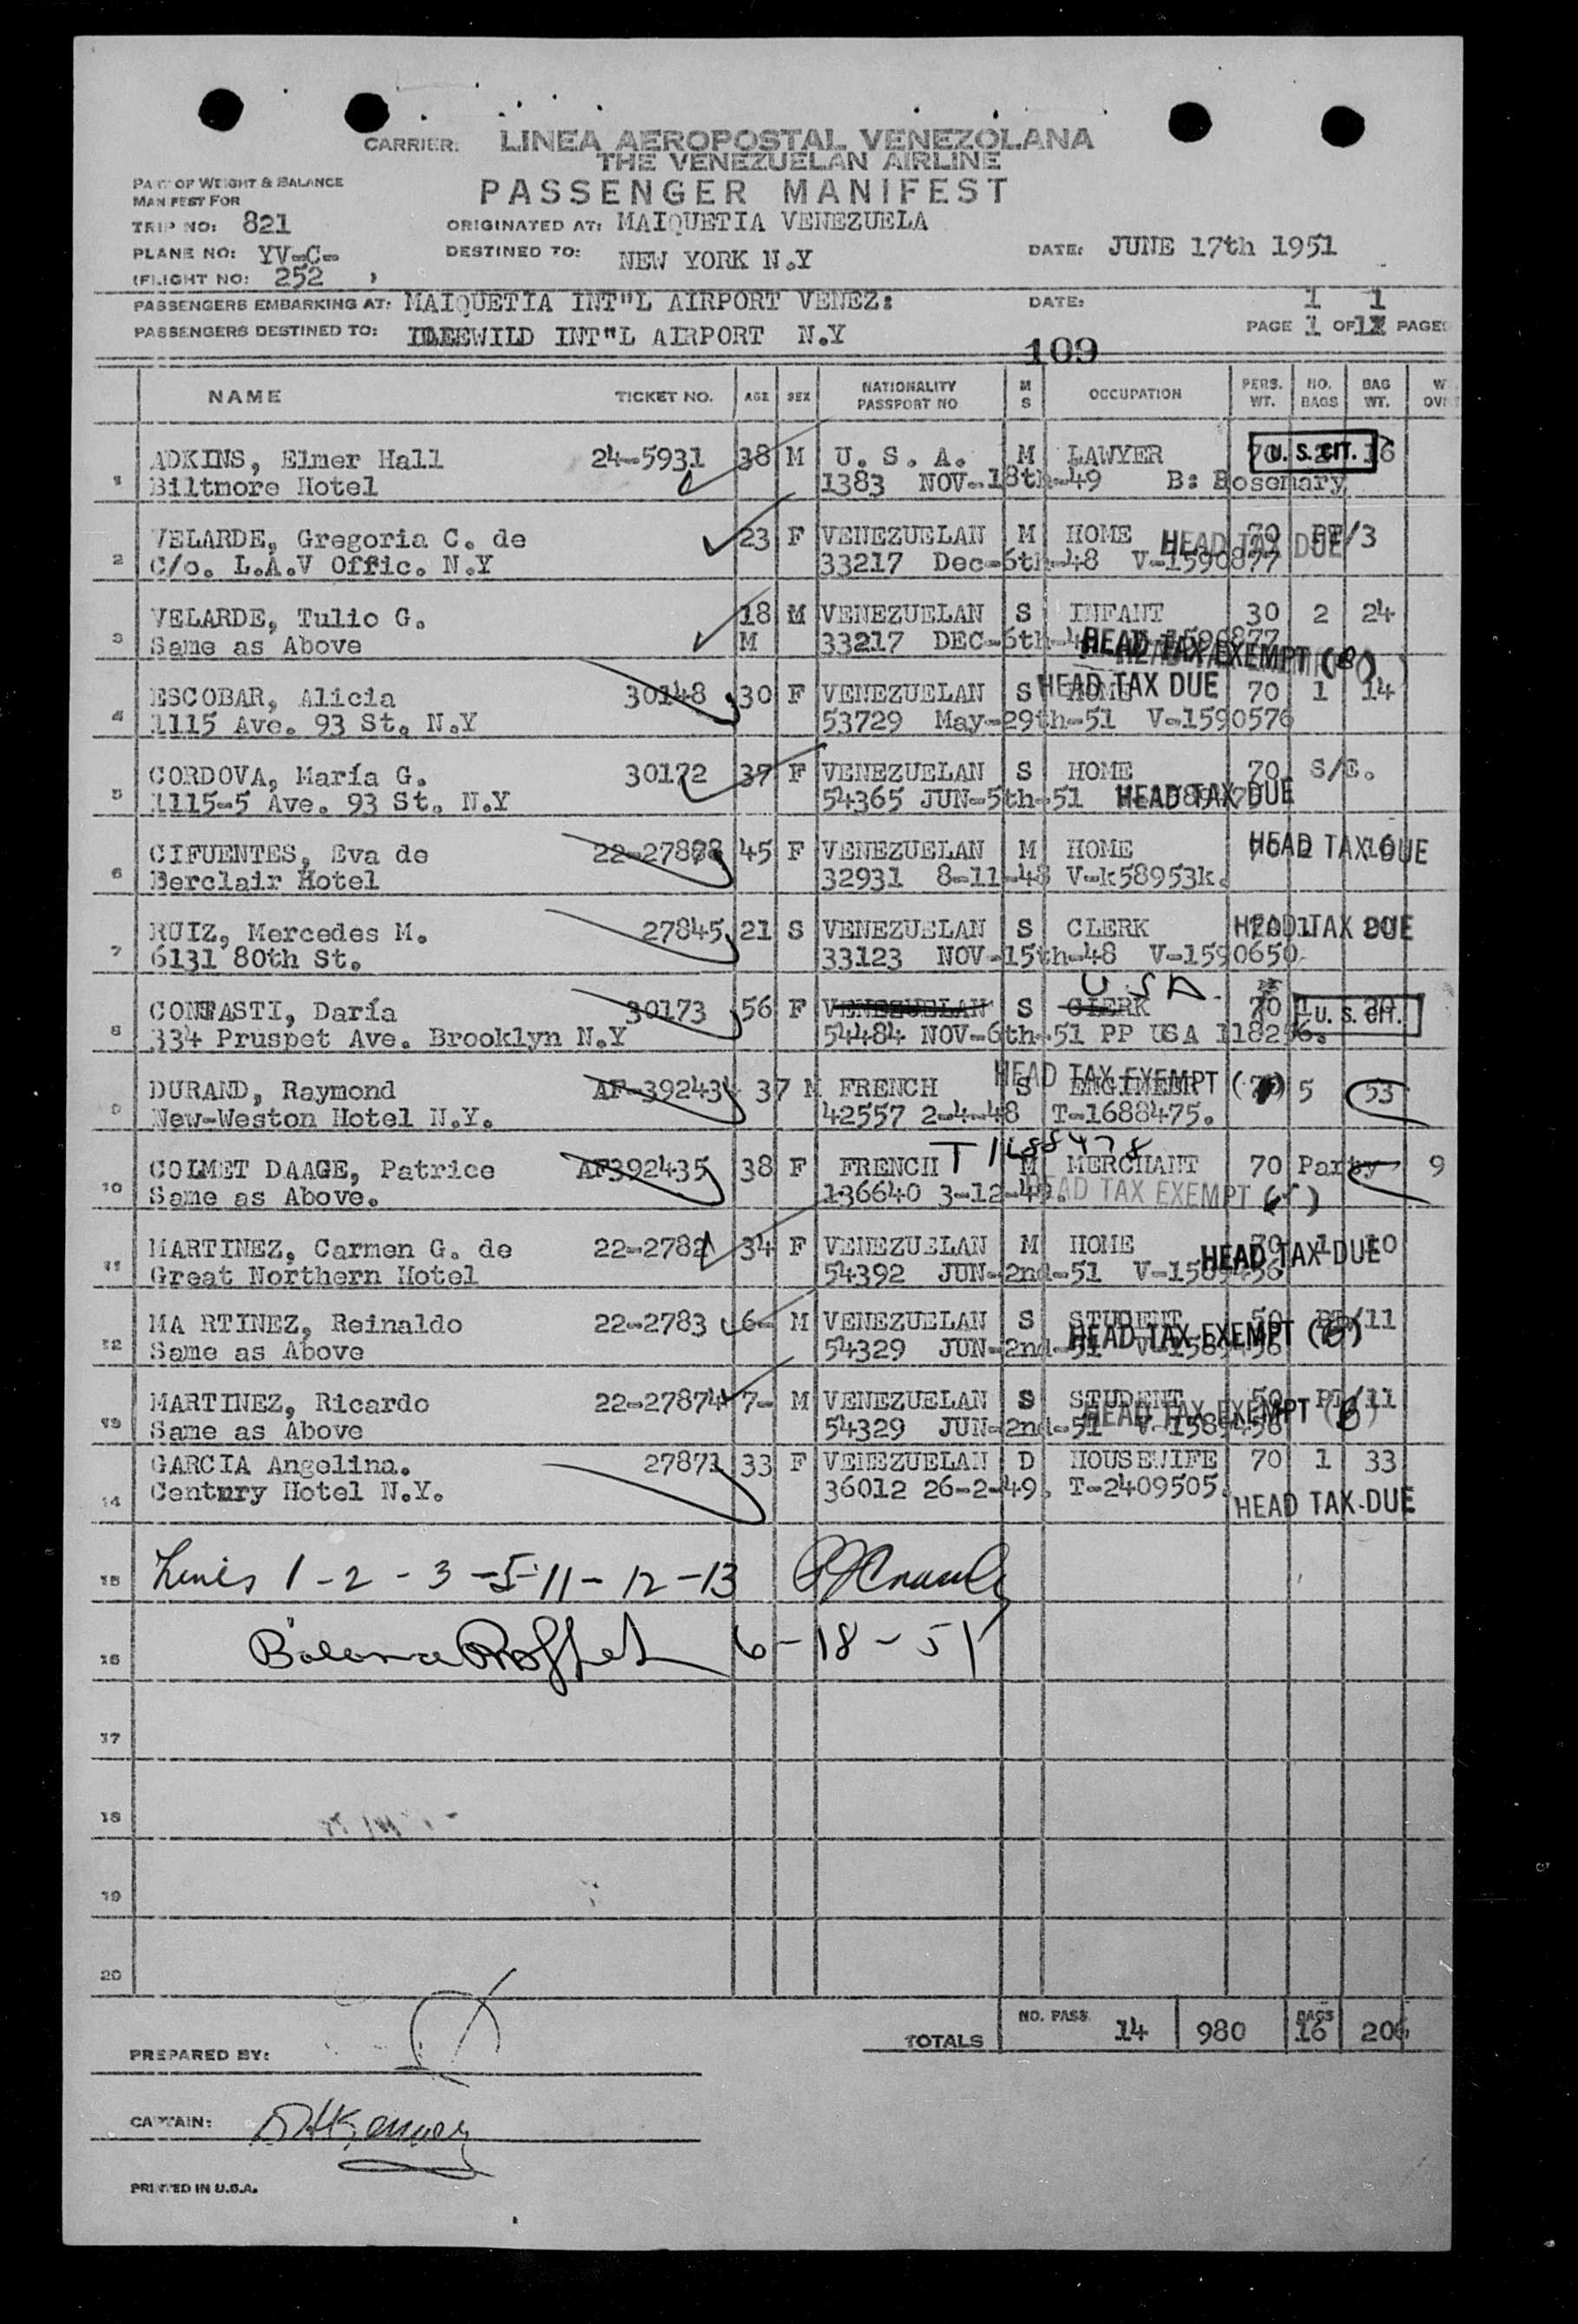 CARRIER: LINEA AEROPOSTAL VENEZOLANA
THE VENEZUELAN AIRLINE
PASSENGER MANIFEST
PART OF WEIGHT & BALANCE
MANIFEST FOR
TRIP NO: 821
ORIGINATED AT: MAIQUETIA VENEZUELA
PLANE NO: YV-C-
DESTINED TO: NEW YORK N.Y
DATE: JUNE 17th 1951
(FLIGHT NO: 252 )
PASSENGERS EMBARKING AT: MAIQUETIA INT"L AIRPORT VENEZ:
DATE: 1 1
PASSENGERS DESTINED TO: IDLEWILD INT"L AIRPORT N.Y
PAGE 1 OF PAGES
109
NAME TICKET NO. AGE SEX NATIONALITY PASSPORT NO M S OCCUPATION PERS. WT. NO. BAGS BAG WT. WT. OVR
1 ADKINS, Elmer Hall 24-5931 38 M U. S. A. M LAWYER 70 2 16 U. S. CIT.
Biltmore Hotel 1383 NOV-18th-49 B: Rosemary
2 VELARDE, Gregoria C. de 23 F VENEZUELAN M HOME 70 PT/3 HEAD TAX DUE
C/o. L.A.V Offic. N.Y 33217 Dec-6th-48 V-1590877
3 VELARDE, Tulio G. 18 M VENEZUELAN S INFANT 30 2 24
Same as Above M 33217 DEC-6th-48 V-1590877 HEAD TAX EXEMPT (B)
4 ESCOBAR, Alicia 30148 30 F VENEZUELAN S HOME 70 1 14 HEAD TAX DUE
1115 Ave. 93 St. N.Y 53729 May-29th-51 V-1590576
5 CORDOVA, María G. 30172 37 F VENEZUELAN S HOME 70 S/E.
1115-5 Ave. 93 St. N.Y 54365 JUN-5th-51 HEAD TAX DUE
6 CIFUENTES, Eva de 22-27878 45 F VENEZUELAN M HOME 70 2 16 HEAD TAX DUE
Berclair Hotel 32931 8-11-48 V-k58953k.
7 RUIZ, Mercedes M. 27845 21 S VENEZUELAN S CLERK 70 1 20 HEAD TAX DUE
6131 80th St. 33123 NOV-15th-48 V-1590650
U S A.
8 CONTASTI, Daría 30173 56 F VENEZUELAN S CLERK 70 1 30 U. S. CIT.
334 Pruspet Ave. Brooklyn N.Y 54484 NOV-6th-51 PP USA 118256.
9 DURAND, Raymond AF-392434 37 M FRENCH S ENGINEER 5 53 HEAD TAX EXEMPT
New-Weston Hotel N.Y. 42557 2-4-48 T-1688475.
T 1688478
10 COLMET DAAGE, Patrice AF392435 38 F FRENCH M MERCHANT 70 Party 9
Same as Above. 136640 3-12-49. HEAD TAX EXEMPT
11 MARTINEZ, Carmen G. de 22-2782 34 F VENEZUELAN M HOME 70 1 10
Great Northern Hotel 54392 JUN-2nd-51 V-1589456 HEAD TAX DUE
12 MA RTINEZ, Reinaldo 22-2783 6- M VENEZUELAN S STUDENT 50 PT/11
Same as Above 54329 JUN-2nd-51 V-1589456 HEAD TAX EXEMPT (B)
13 MARTINEZ, Ricardo 22-27874 7- M VENEZUELAN S STUDENT 50 PT/11
Same as Above 54329 JUN-2nd-51 V-1589456 HEAD TAX EXEMPT (B)
GARCIA Angelina. 27871 33 F VENEZUELAN D HOUSEWIFE 70 1 33
14 Century Hotel N.Y. 36012 26-2-49. T-2409505. HEAD TAX DUE
15 Lines 1-2-3-5-11-12-13
16 Balance 6-18-51
17
18
19
20
TOTALS NO. PASS. 14 980 BAGS 16 206
PREPARED BY:
CAPTAIN:
PRINTED IN U.S.A.